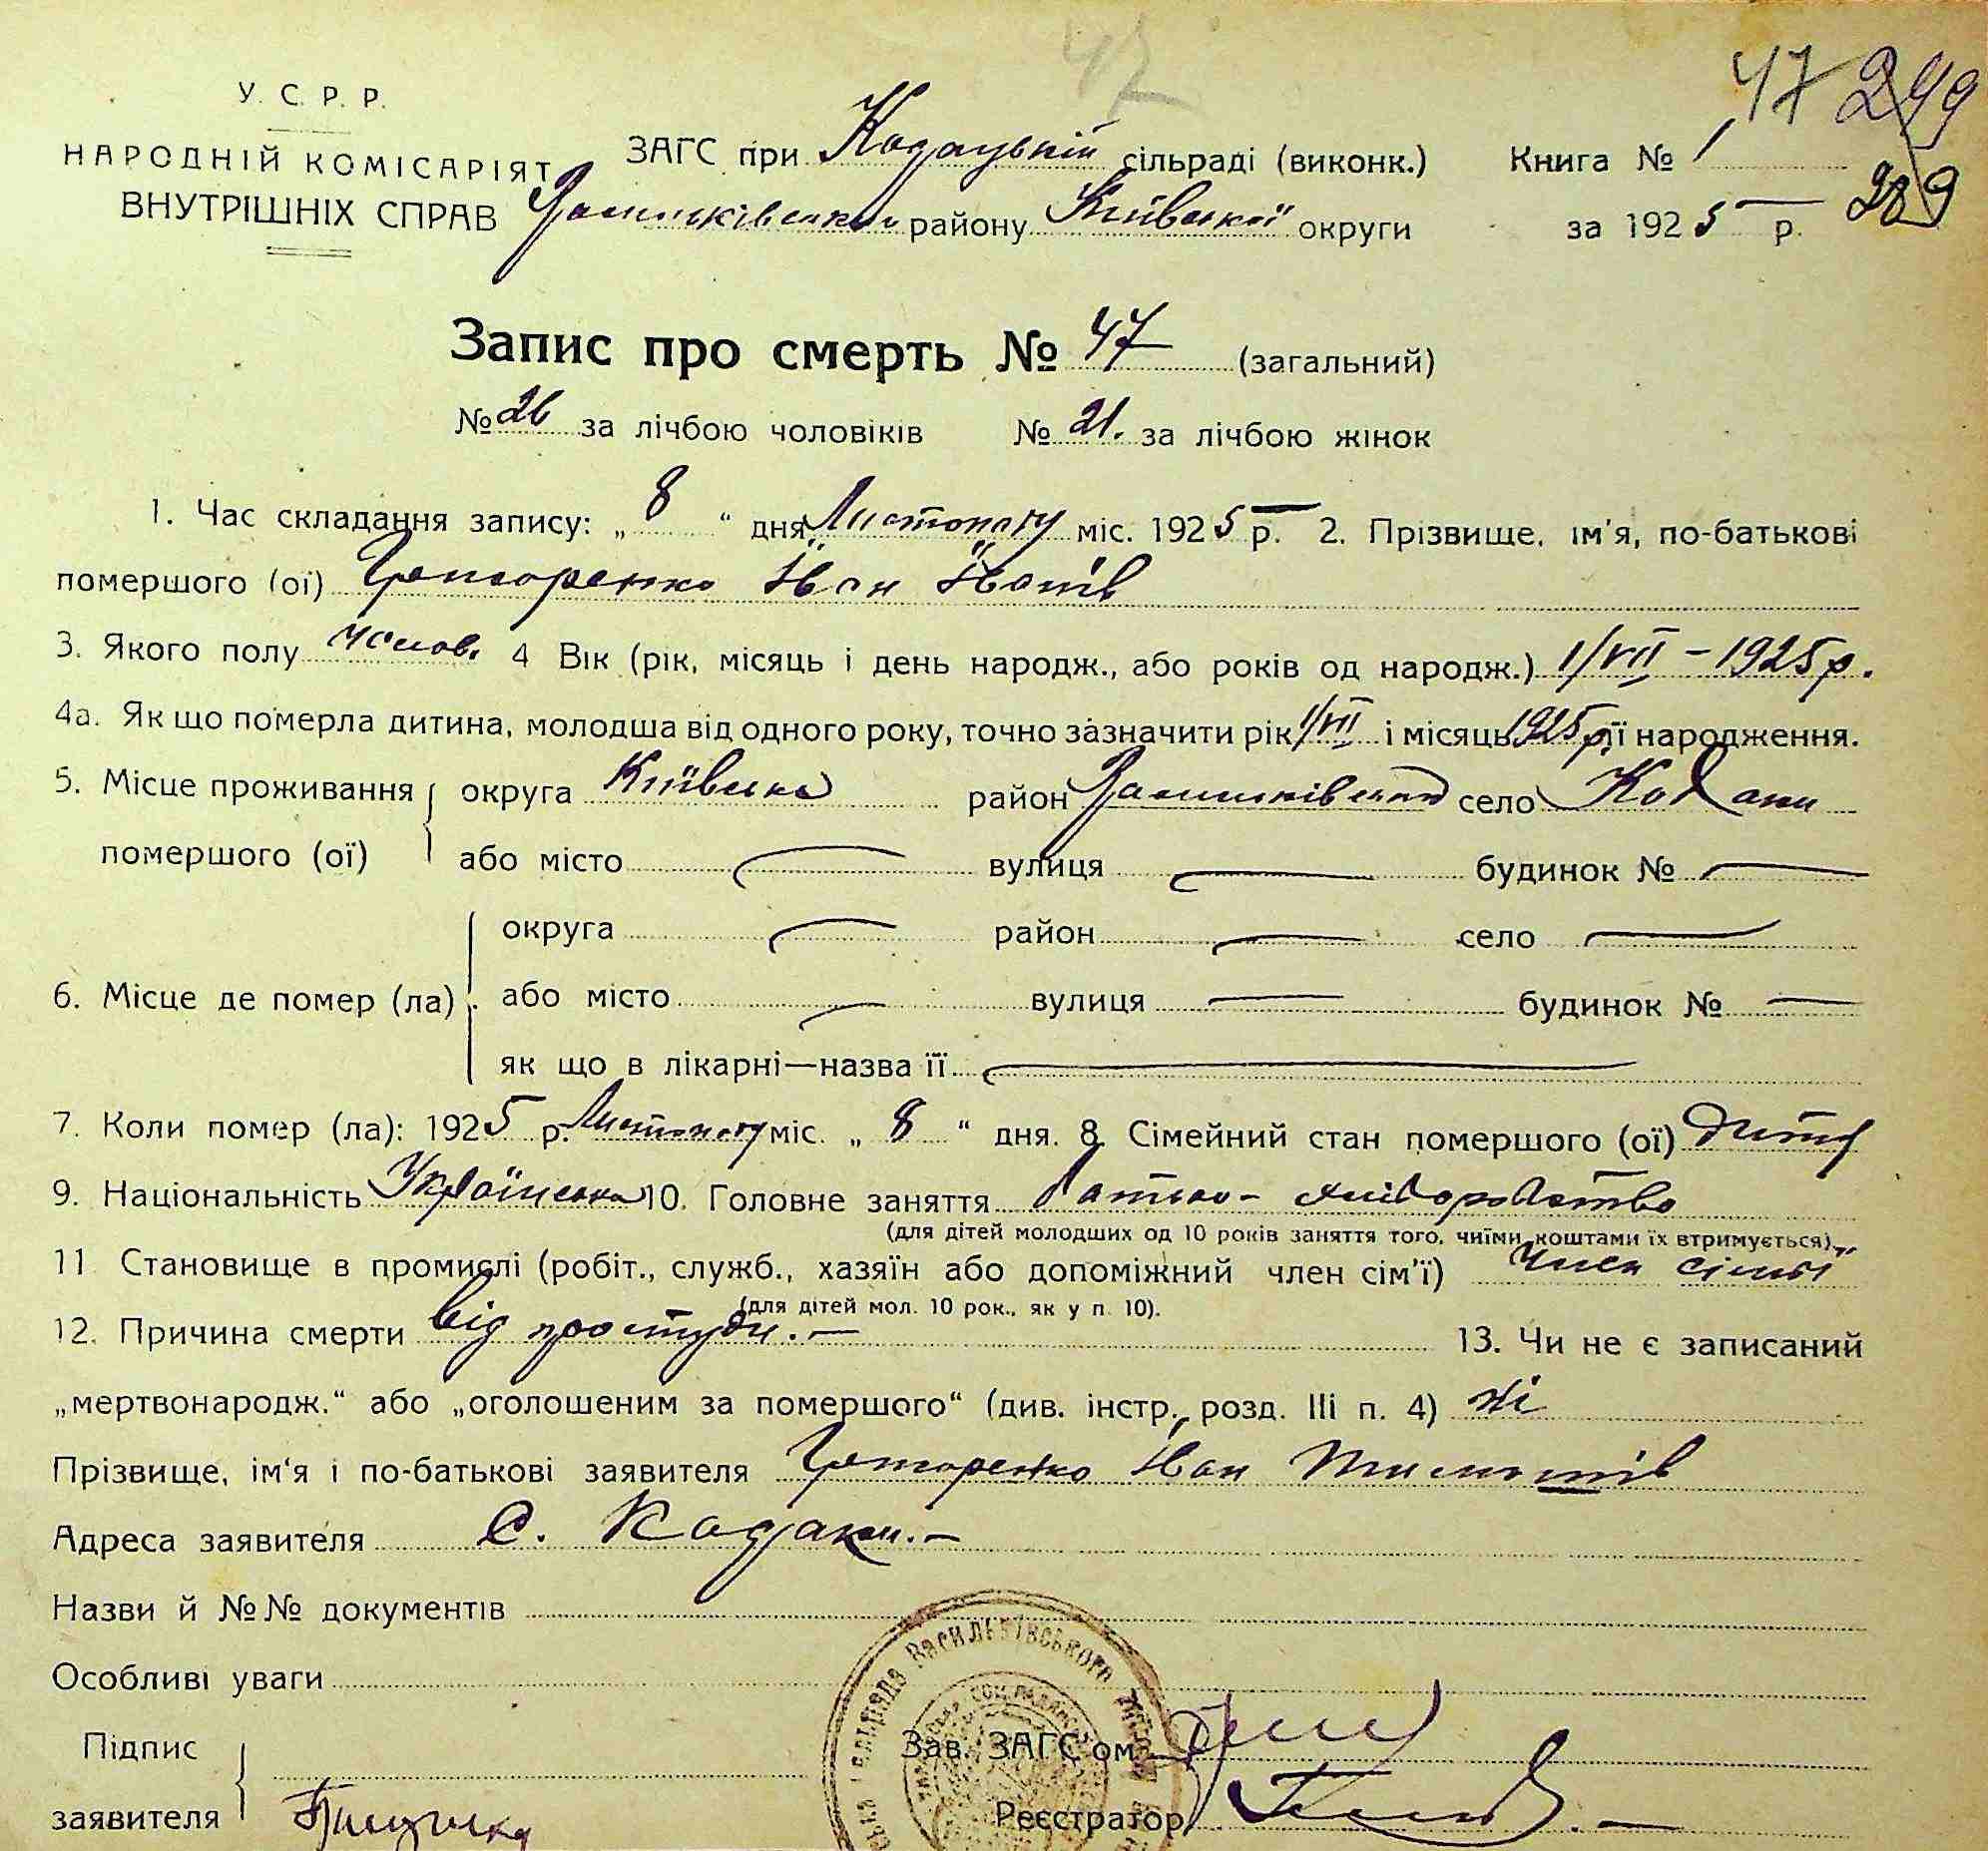 47
47 299
У. С. Р. Р.
НАРОДНІЙ КОМІСАРІЯТ ЗАГС при Кодацькій сільраді (виконк.) Книга № 1
ВНУТРІШНІХ СПРАВ району Київської округи за 1925 р.
Запис про смерть № 47 (загальний)
№ 26 за лічбою чоловіків № 21. за лічбою жінок
1. Час складання запису: „ 8 “ дня Листопаду міс. 1925 р. 2. Прізвище, ім'я, по-батькові
помершого (ої) Іван Іванів
3. Якого полу чолов. 4 Вік (рік, місяць і день народж., або років од народж.) 1/VII – 1925 р.
4а. Як що померла дитина, молодша від одного року, точно зазначити рік 1/VII і місяць 1925 р. її народження.
5. Місце проживання округа Київська район село Кодаки
помершого (ої) або місто вулиця будинок №
округа район село
6. Місце де помер (ла) або місто вулиця будинок №
як що в лікарні—назва її
7. Коли помер (ла): 1925 р. Листопаду міс. „ 8 “ дня. 8. Сімейний стан помершого (ої) дитя
9. Національність Українська 10. Головне заняття батько - хліборобство
(для дітей молодших од 10 років заняття того, чиїми коштами їх втримується)
11 Становище в промислі (робіт., служб., хазяїн або допоміжний член сім'ї) член сімьї
(для дітей мол. 10 рок., як у п. 10).
12. Причина смерти від простуди. – 13. Чи не є записаний
„мертвонародж.“ або „оголошеним за помершого“ (див. інстр., розд. III п. 4) ні
Прізвище, ім‘я і по-батькові заявителя Іван Тимошів
Адреса заявителя с. Кодаки. –
Назви й №№ документів
Особливі уваги
Підпис Зав. ЗАГС'ом
заявителя Реєстратор
Василківського